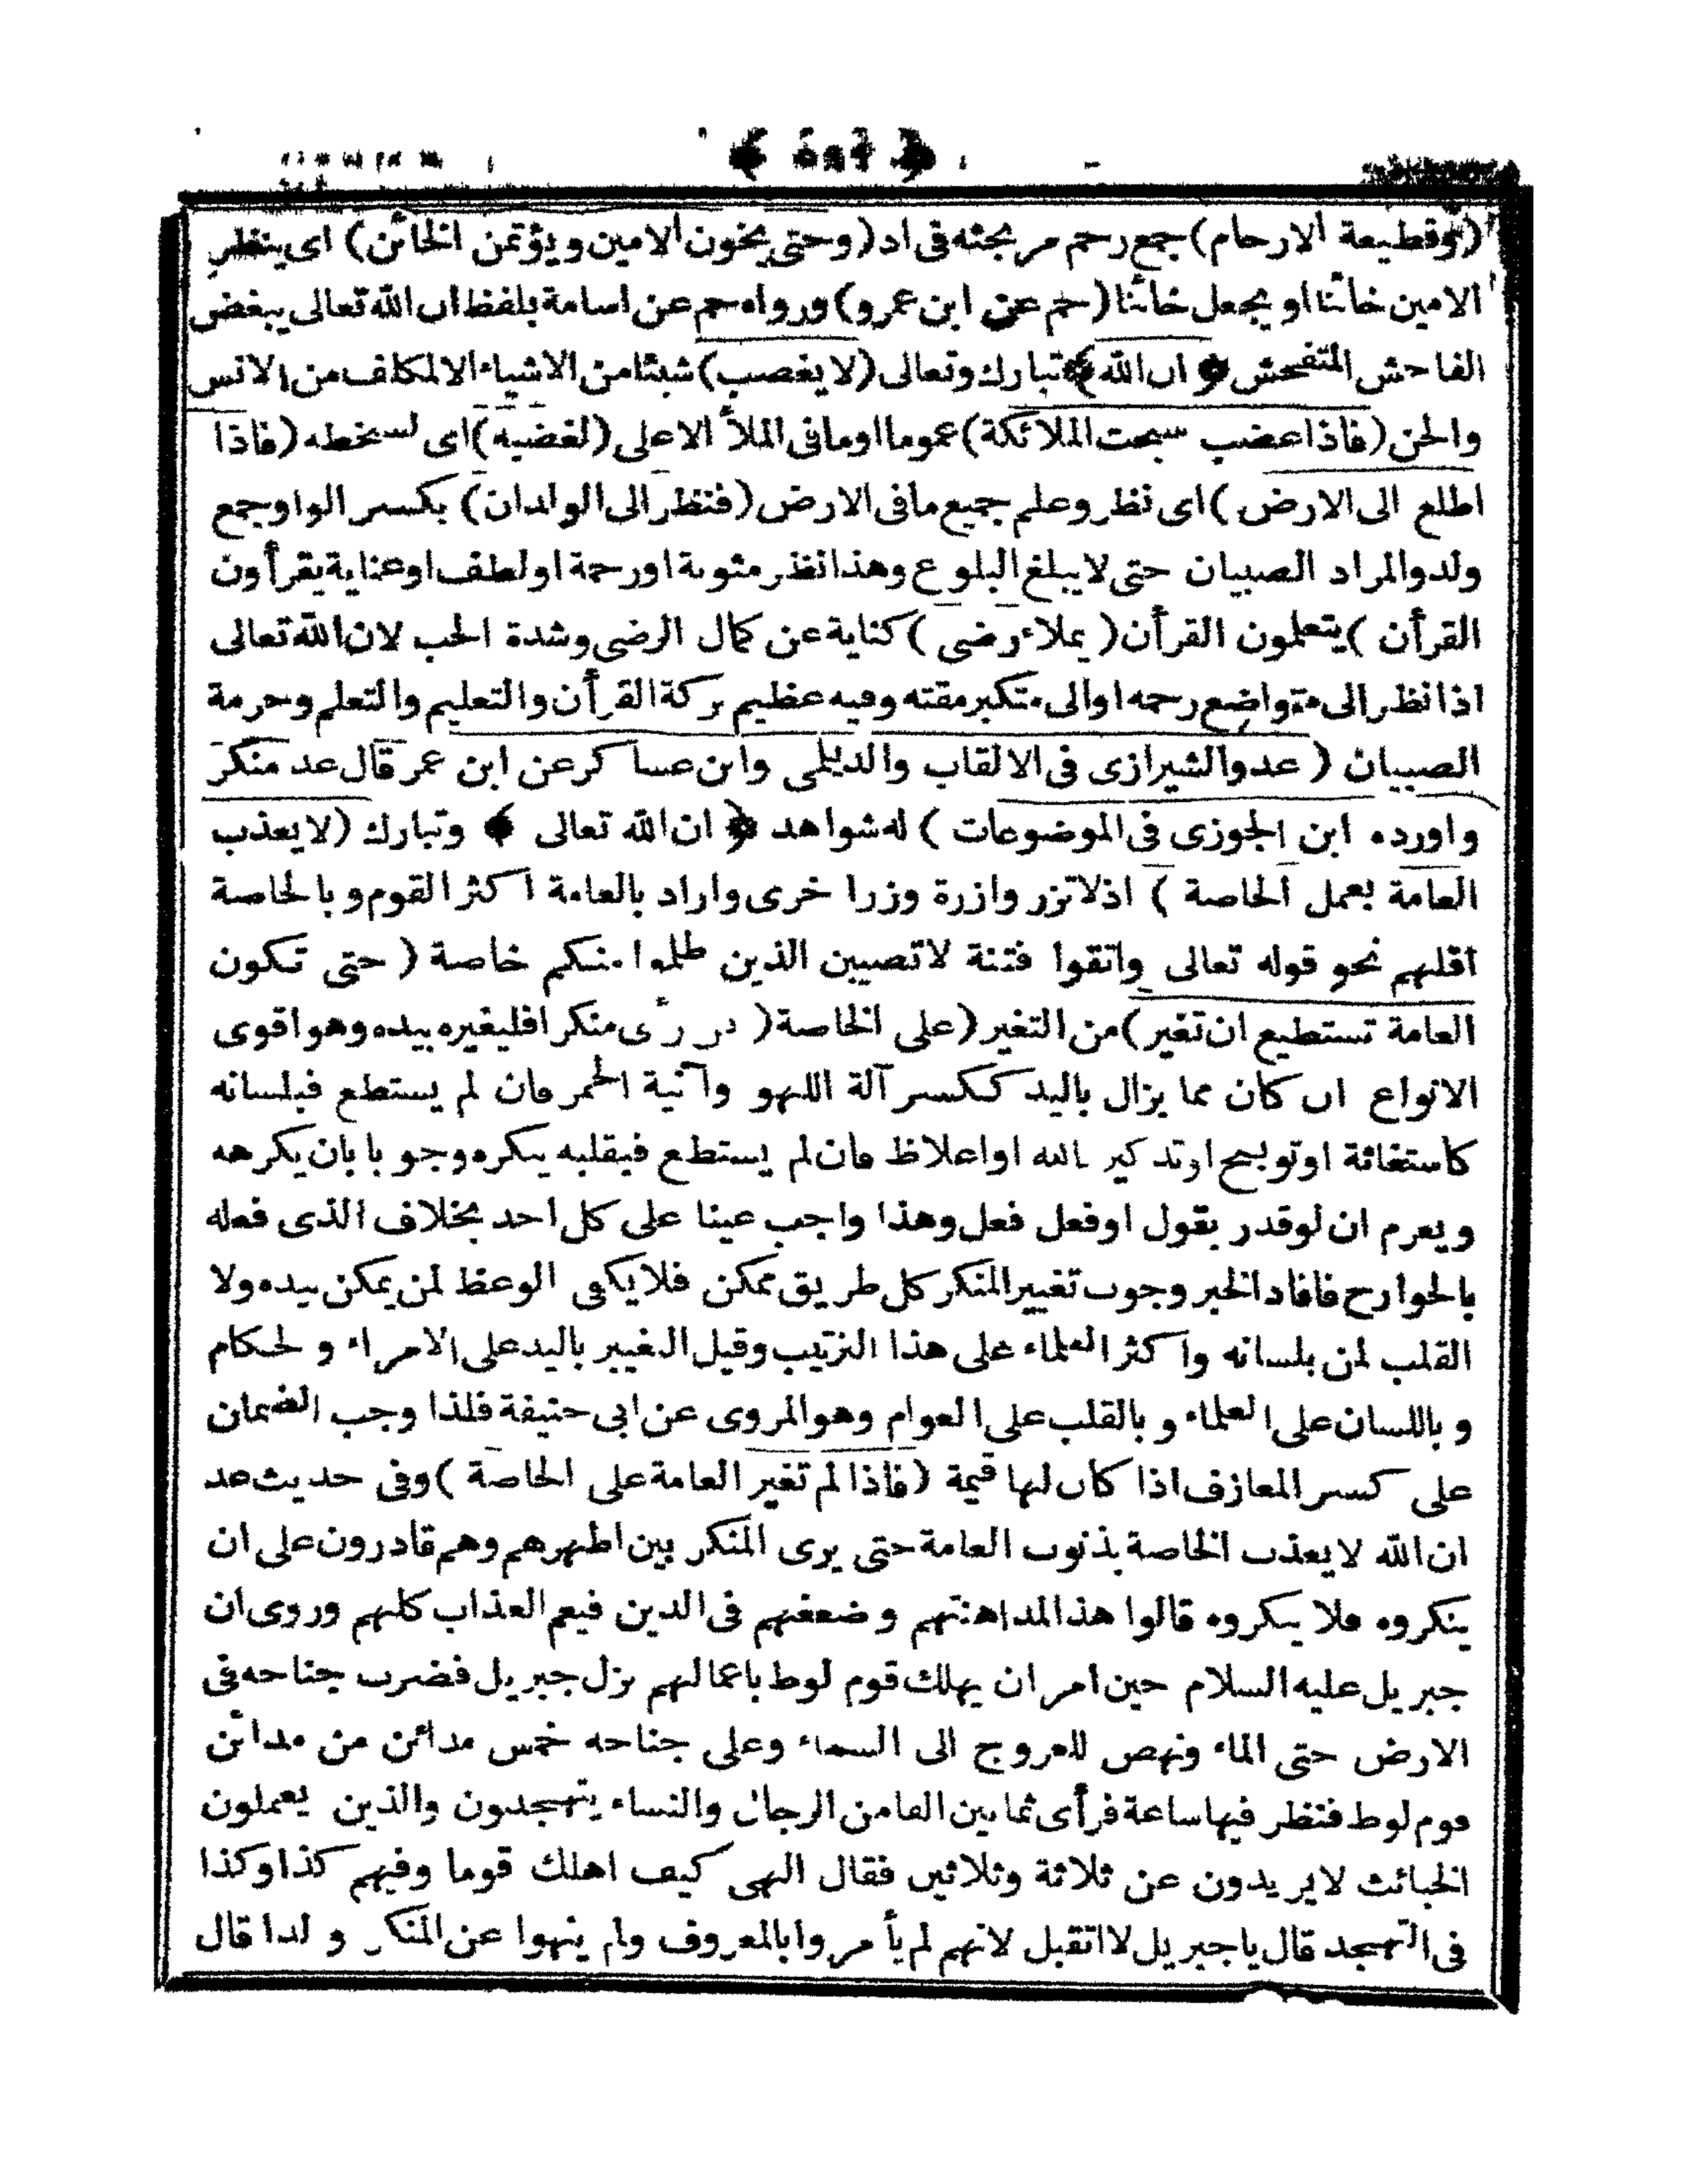 (وقطيعة الارحام) جمع رحم مر بحثه فى اد (وحتى يخون الامين ويؤتمن الخائن) اى ينظر
الامين خائنا او يجعل خائنا (حم عن ابن عمرو) ورواه حم عن اسامة بلفظ ان الله تعالى يبغض
الفاحش المتفحش ﴿ ان الله ﴾ تبارك وتعالى (لا يغصب) شيئا من الاشياء الا لمكلف من الانس
والجن (فاذا غضب سبحت الملائكة) عموما او ما فى الملأ الاعلى (لغضبه) اى لسخطه (فاذا
اطلع الى الارض) اى نظر وعلم جميع ما فى الارض (فنظر الى الولدان) بكسر الواو جمع
ولد والمراد الصبيان حتى لا يبلغ البلوغ وهذا نظر مثوبة او رحمة او لطف او عناية يقرأون
القرأن) يتعلمون القرأن (يملاء رضى) كناية عن كمال الرضى وشدة الحب لان الله تعالى
اذا نظر الى متواضع رحمه او الى متكبر مقته وفيه عظيم بركة القرأن والتعليم والتعلم وحرمة
الصبيان (عد والشيرازى فى الالقاب والديلمى وابن عساكر عن ابن عمر قال عد منكر
واورده ابن الجوزى فى الموضوعات) له شواهد ﴿ ان الله تعالى ﴾ وتبارك (لا يعذب
العامة بعمل الخاصة) اذ لا تزر وازرة وزر اخرى واراد بالعامة اكثر القوم وبالخاصة
اقلهم نحو قوله تعالى واتقوا فتنة لا تصيبن الذين ظلموا منكم خاصة (حتى تكون
العامة تستطيع ان تغير) من التغير (على الخاصة( رأى منكرا فليغيره بيده وهو اقوى
الانواع ان كان مما يزال باليد ككسر آلة اللهو وآنية الخمر فان لم يستطع فبلسانه
كاستغاثة او توبيخ او تذكير بالله او اغلاظ فان لم يستطع فبقلبه ينكره وجوبا بان يكرهه
ويعزم ان لو قدر بقول او فعل فعل وهذا واجب عينا على كل احد بخلاف الذى فعله
بالجوارح فافاد الخبر وجوب تغيير المنكر كل طريق ممكن فلا يكفى الوعظ لمن يمكن بيده ولا
القلب لمن بلسانه واكثر العلماء على هذا الترتيب وقيل التغيير باليد على الامراء والحكام
وباللسان على العلماء وبالقلب على العوام وهو المروى عن ابى حنيفة فلذا وجب الضمان
على كسر المعازف اذا كان لها قيمة (فاذا لم تغير العامة على الخاصة) وفى حديث عد
ان الله لا يعذب الخاصة بذنوب العامة حتى يرى المنكر بين اظهرهم وهم قادرون على ان
ينكروه فلا ينكروه قالوا هذا لمداهنتهم وضعفهم فى الدين فيعم العذاب كلهم وروى ان
جبريل عليه السلام حين امر ان يهلك قوم لوط باعمالهم نزل جبريل فضرب جناحه فى
الارض حتى الماء ونهض للعروج الى السماء وعلى جناحه خمس مدائن من مدائن
قوم لوط فنظر فيها ساعة فرأى ثمانين الفا من الرجال والنساء يتهجدون والذين يعملون
الخبائث لا يريدون عن ثلاثة وثلاثين فقال الهى كيف اهلك قوما وفيهم كذا وكذا
فى التهجد قال يا جبريل لا اتقبل لانهم لم يأمروا بالمعروف ولم ينهوا عن المنكر ولذا قال